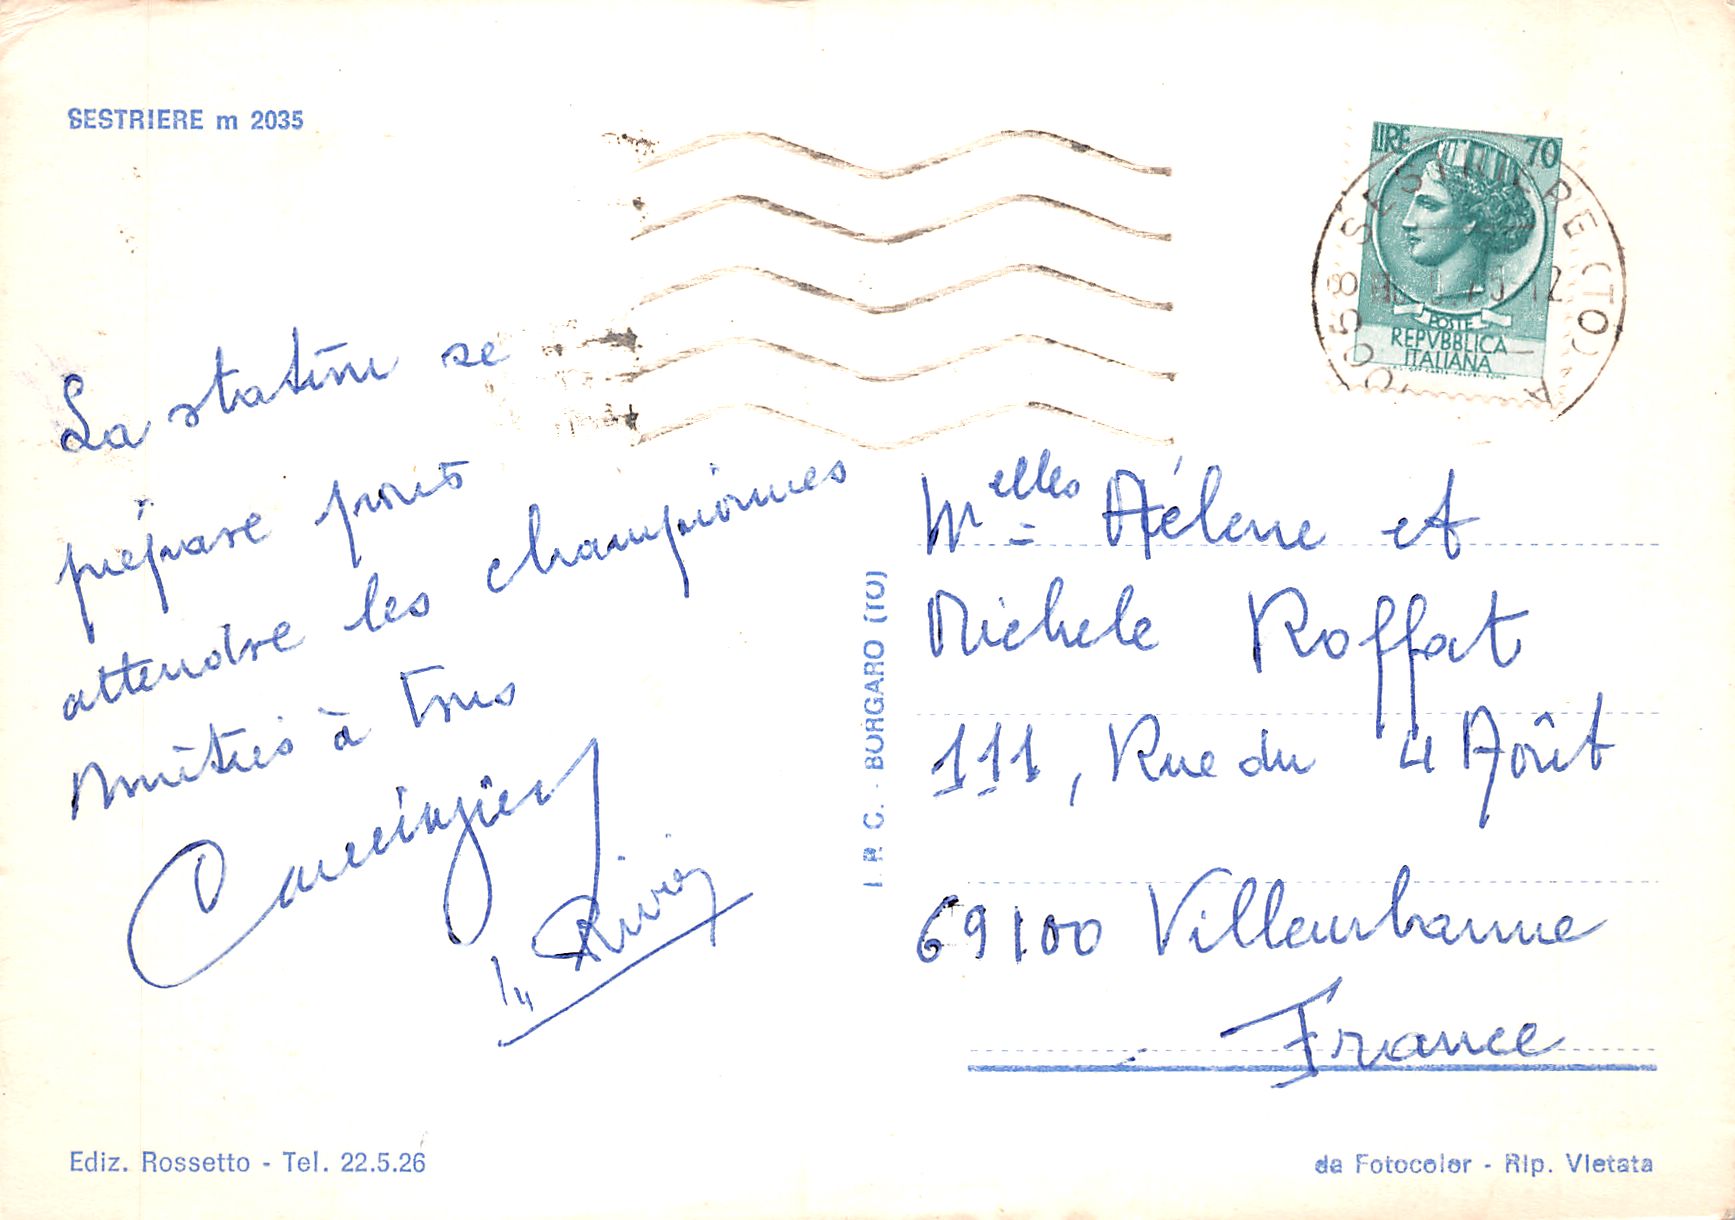 SESTRIERE m 2035
LIRE 70
POSTE
REPVBBLICA
ITALIANA
10058 SESTRIERE (TO)
La station se
prépare pour
attendre les championnes
Amitiés à tous
Melles Hélène et
Michele Roffat
111, Rue du 4 Août
69100 Villeurbanne
France
I. R. G. - BORGARO (TO)
Ediz. Rossetto - Tel. 22.5.26
da Fotocolor - Rip. Vietata